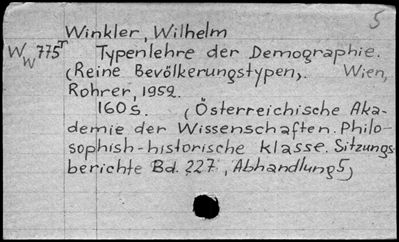 5
Winkler, Wilhelm
WW 775T Typenlehre der Demographie.
(Reine Bevölkerungstypen). Wien,
Rohrer, 1952.
160 S. (Österreichische Aka-
demie der Wissenschaften. Philo-
sophish-historische Klasse. Sitzungs-
berichte Bd. 227, Abhandlung 5)